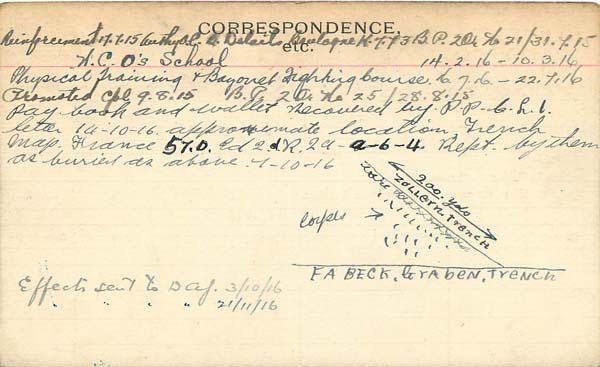 CORRESPONDENCE.
etc.
Reinforcement 17.7.15 Auth y O. i/c Details Boulogne K.7.73 B.P. 2 Or. No 21/31.7.15
N.C.O's School 14.2.16 - 10.3.16
Physical Training & Bayonet Fighting Course. 6.7.16 - 22.7.16
Promoted Cpl 9.8.15 B.P. 2 Or. No 25/28.8.15
Pay book and wallet recovered by P.P.C.L.I.
letter 14-10-16. approximate location, Trench
Map, France 57.D. Ed 2d R. 29-a-6-4. Rept. by them
as buried as above. 7-10-16
200 yds
ZOLLERN TRENCH
wire
Corpses
FABECK, GRABEN, TRENCH
Effects sent to D A G. 3/10/16
" " " " 21/11/16